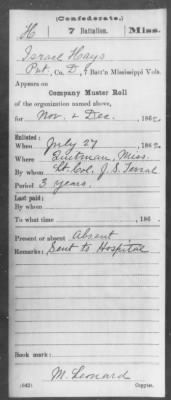 (Confederate.)
H 7 Battalion. Miss.
Israel Hays
Pvt, Co. D, 7 Batt'n Mississippi Vols.
Appears on
Company Muster Roll
of the organization named above,
for Nov. & Dec., 186
Enlisted:
When July 27, 186
Where Quitman, Miss.
By whom Lt. Col. J. S. Terral
Period 3 years.
Last paid:
By whom
To what time , 186 .
Present or absent Absent
Remarks: Sent to Hospital
Book mark:
M. Leonard
(642) Copyist.